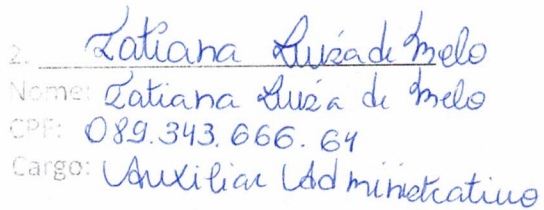 2. Tatiana Luiza de Melo
Nome: Tatiana Luiza de Melo
CPF: 089.343.666.64
Cargo: Auxiliar Administrativo